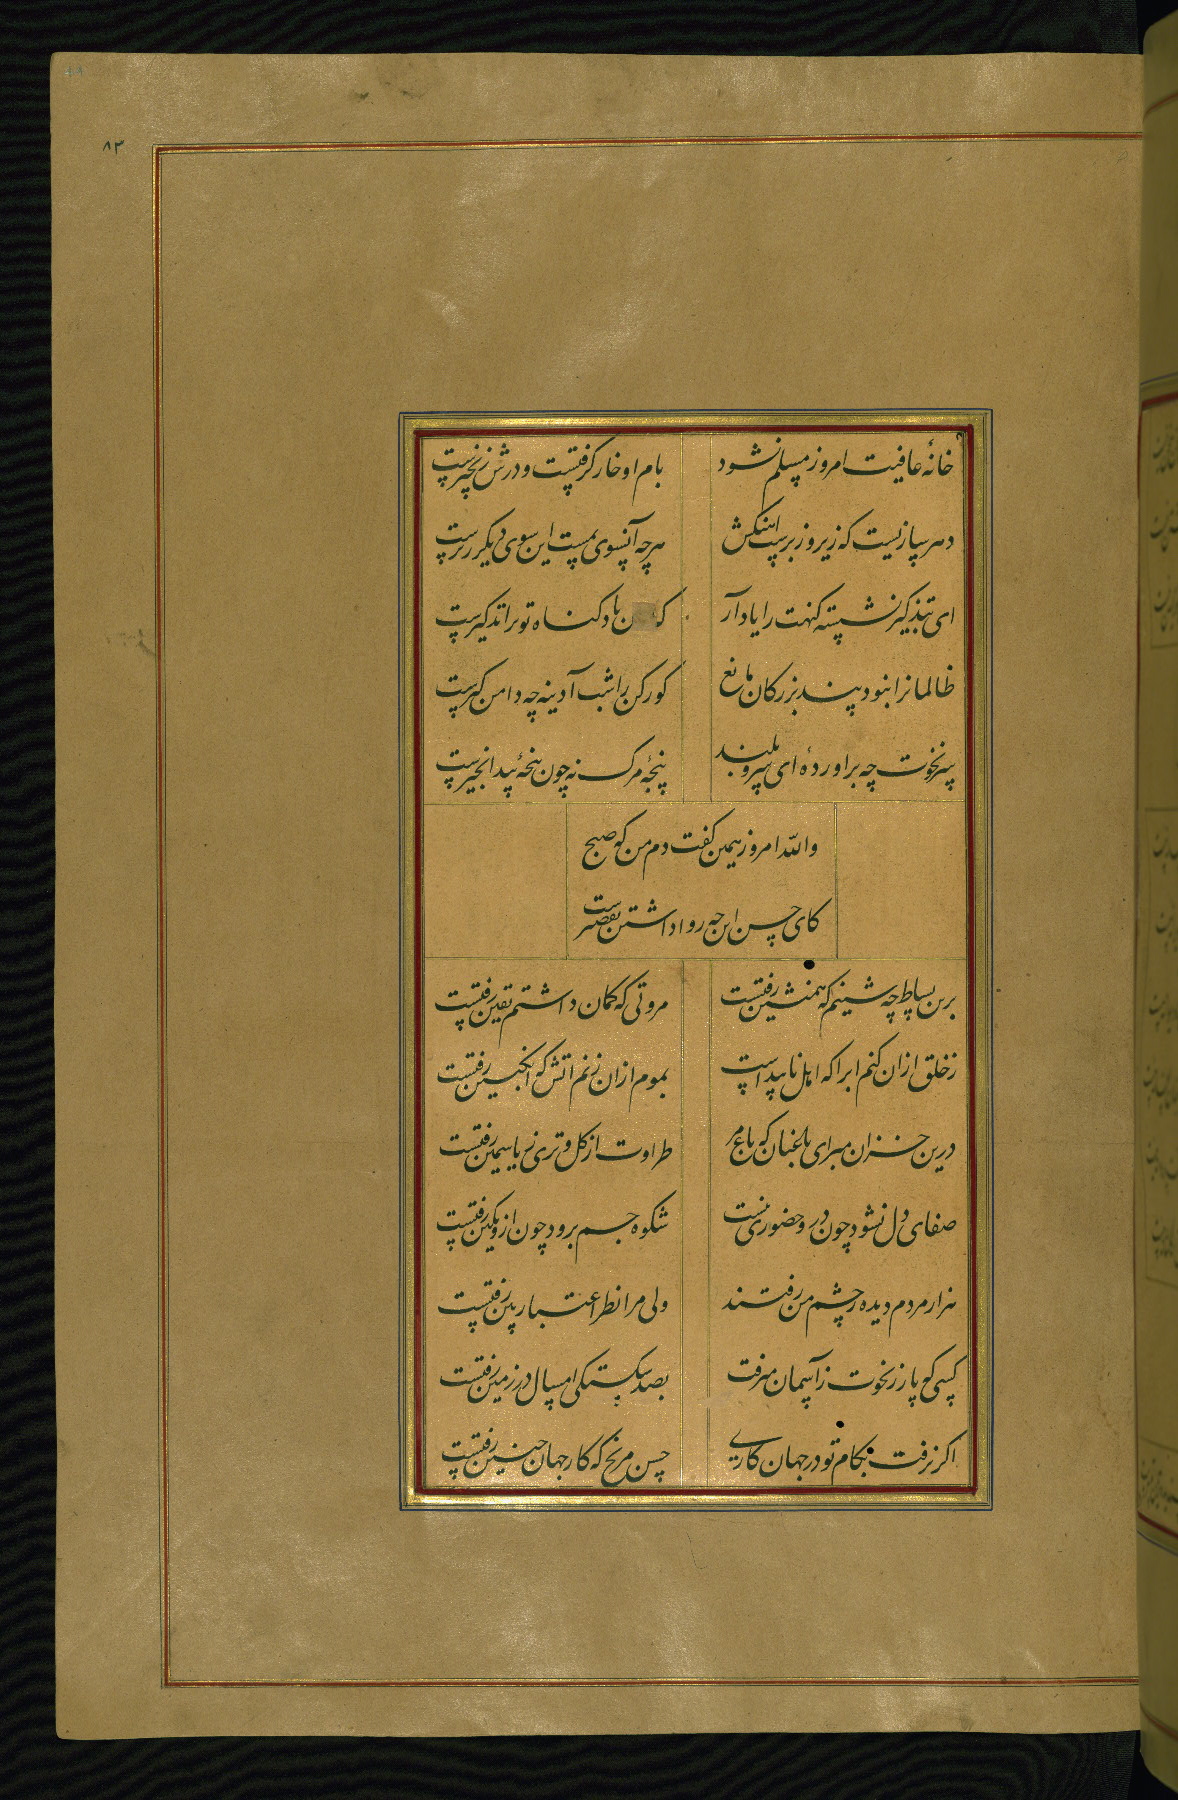 ۸۳
خانهٔ عافیت امروز مسلم نشود بام او خار گرفتست و درش زنجیرست
دهر سپازیست که زیر و زبرست اهنکش هرچه آنسوی بمست این سوی دیگر زیرست
ای بتذکیر نشسته گنهت را یاد آر که باد گناه تو برا تذکیرست
ظالمانرا نبود پند بزرگان مانع کورکن را شب آدینه چه دامن گیرست
سر نخوت چه براوردهٔ ای سرو بلند پنجهٔ مرگ نه چون پنجهٔ بید انجیرست
والله امروز همین گفت دم من که صبح
کای حسن این چه روا داشتن تقصیرست
برین بساط چه شینم که همنشین رفتست مروتی که گمان داشتم یقین رفتست
ز خلق ازان کنم ابرا که اهل ناپیداست بموم ازان زنم اتش که انگبین رفتست
درین خزان مبرای باغبان که باغ مر طراوت از گل و تری ز یاسمین رفتست
صفای دل نشود چون درو حضوری نیست شکوه جسم برود چون ازو نگین رفتست
هزار مردم دیده ز چشم من رفتند ولی مرا نظر اعتبار بین رفتست
کسی کو پار ز نخوت ز آسمان میرفت بصد شکستگی امسال در زمین رفتست
اگر نرفت بکام تو در جهان کاری حسن مرنج که کار جهان چنین رفتست